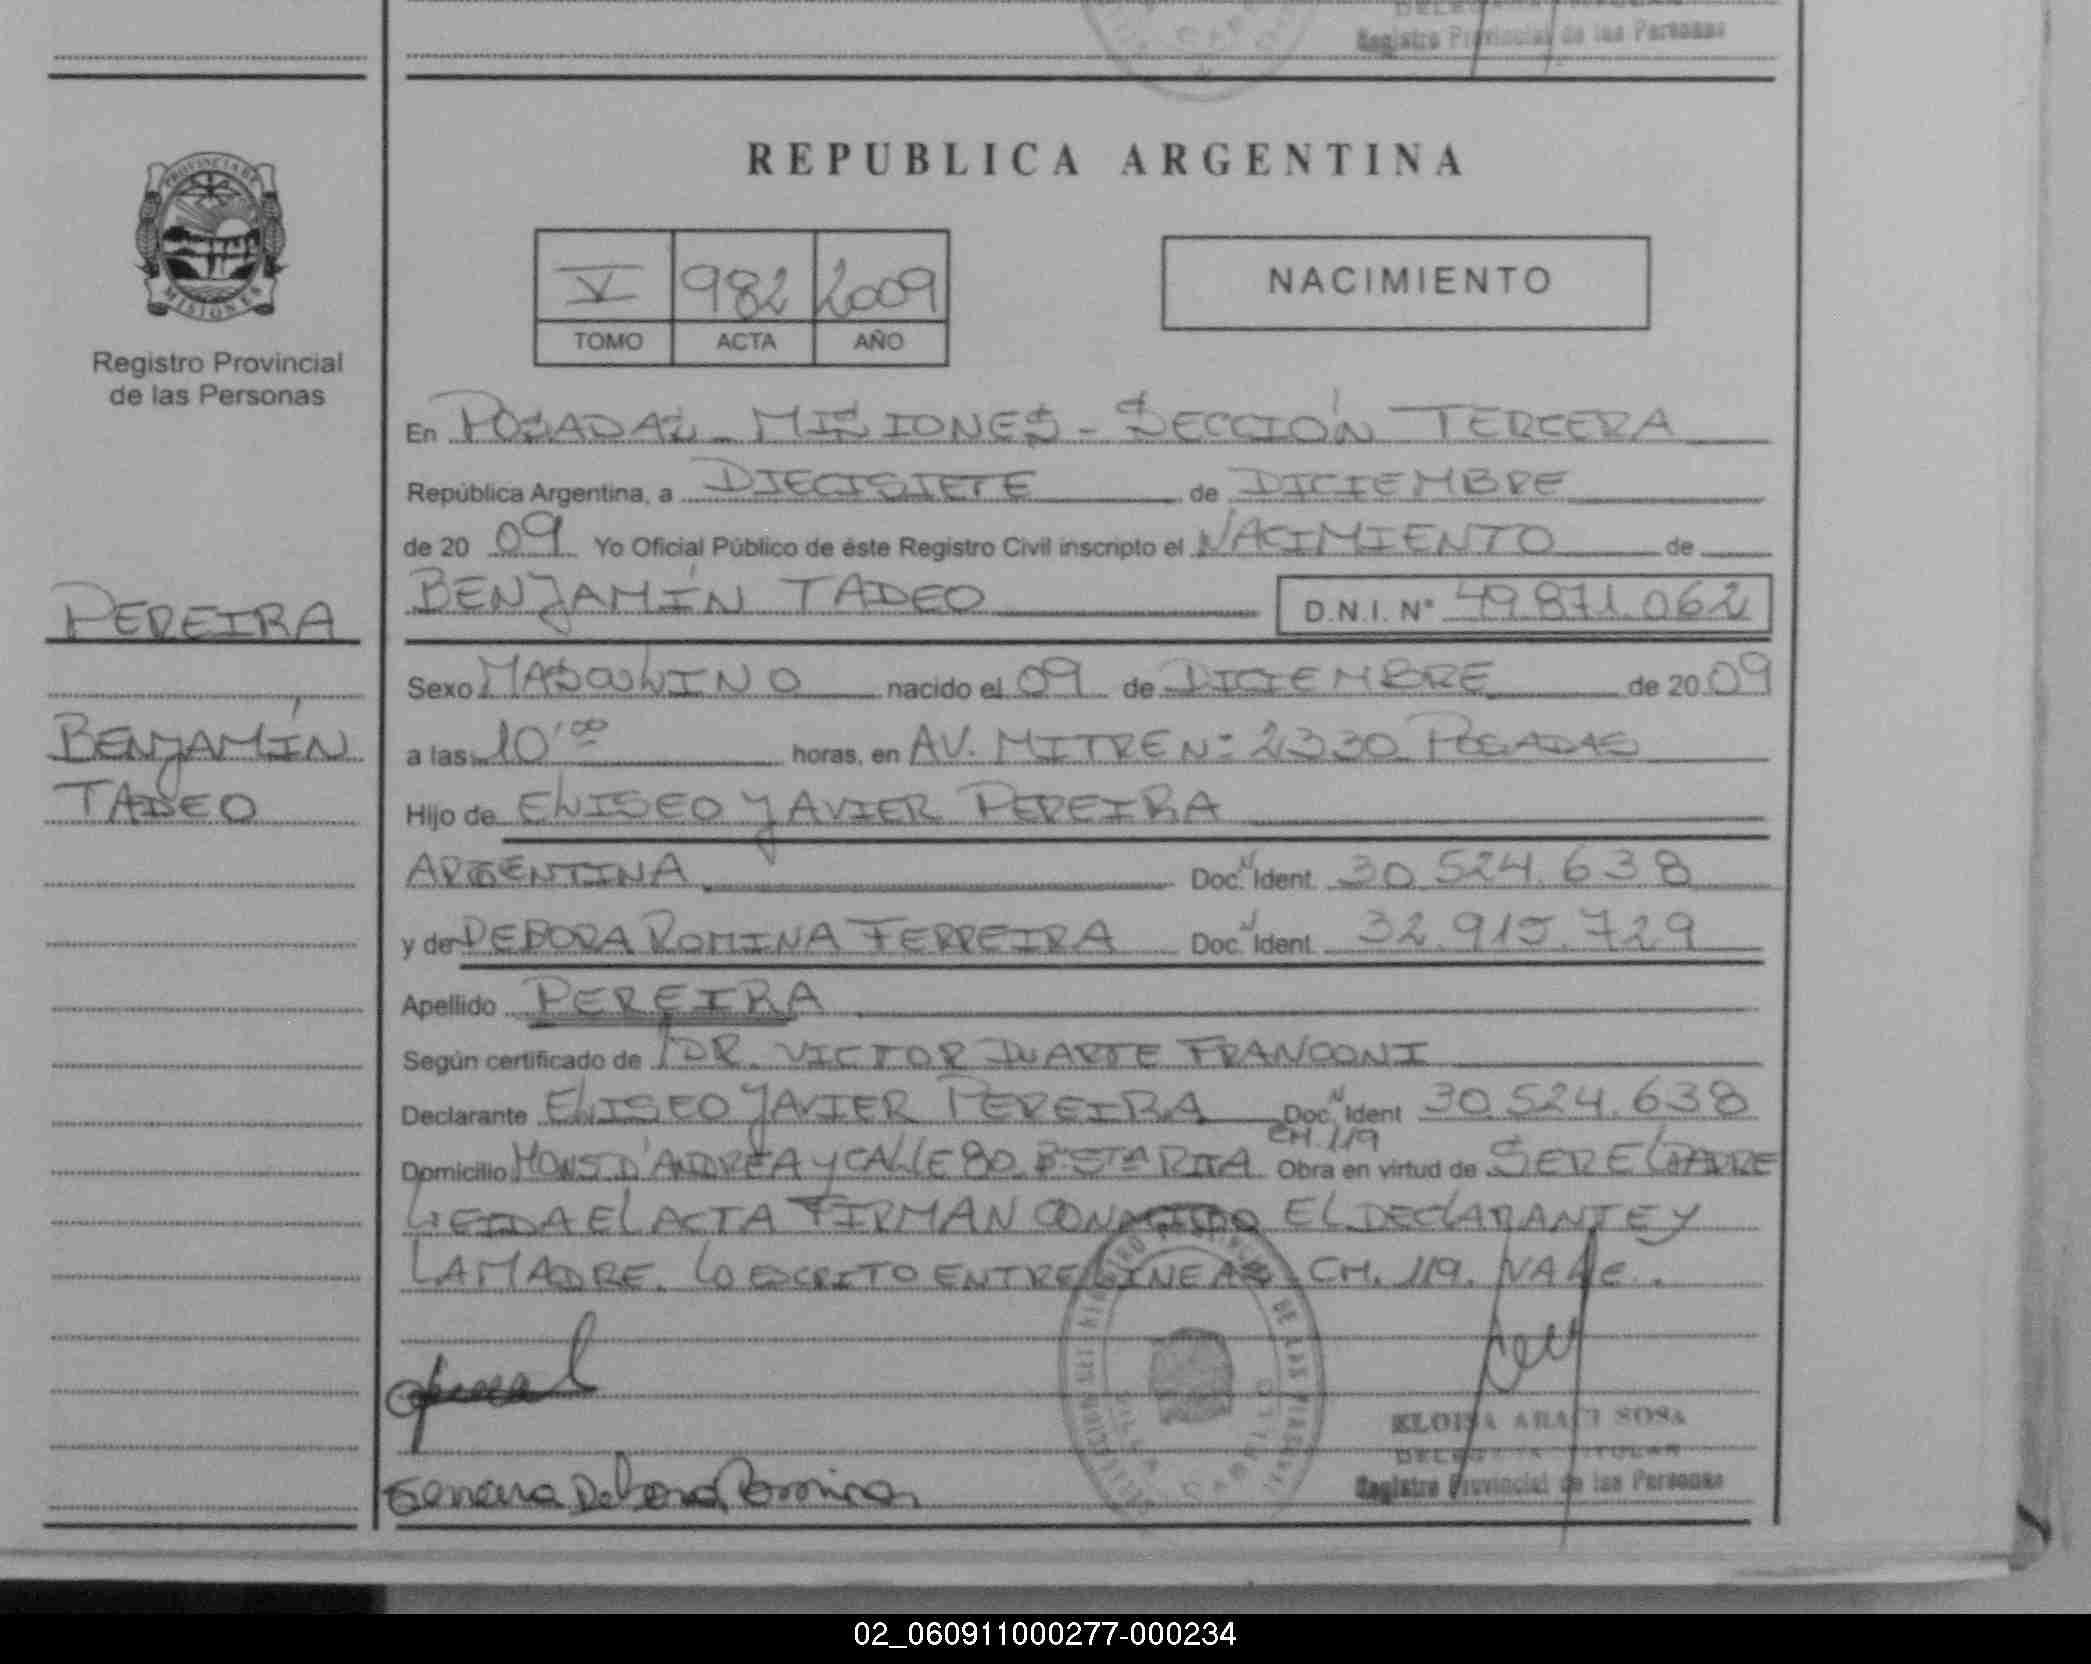 Registro Provincial de las Personas
REPUBLICA ARGENTINA
PROVINCIA DE
MISIONES
Registro Provincial
de las Personas
V 982 2009
TOMO ACTA AÑO
NACIMIENTO
En POSADAS - MISIONES - SECCIÓN TERCERA
República Argentina, a DIECISIETE de DICIEMBRE
de 20 09 Yo Oficial Público de éste Registro Civil inscripto el NACIMIENTO de
PEREIRA
BENJAMÍN TADEO D.N.I. N° 49.871.062
Sexo MASCULINO nacido el 09 de DICIEMBRE de 20 09
BENJAMÍN
a las 10'00 horas, en AV. MITRE Nº 2330 POSADAS
TADEO
Hijo de ELISEO JAVIER PEREIRA
ARGENTINA Doc. Ident. 30.524.638
y de DEBORA ROMINA FERREIRA Doc. Ident. 32.915.729
Apellido PEREIRA
Según certificado de DR. VICTOR DUARTE FRANCONI
Declarante ELISEO JAVIER PEREIRA Doc. Ident 30.524.638
CH. 119
Domicilio MONS D'ANDREA Y CALLE 80 Bº STA RITA Obra en virtud de SER EL PADRE
LEIDA EL ACTA FIRMAN CONMIGO EL DECLARANTE Y
LA MADRE. LO ESCRITO ENTRE LINEAS. CH. 119. VALE.
ELOISA ARACI SOSA
DELEGADA TITULAR
Registro Provincial de las Personas
Debora Romina
02_060911000277-000234